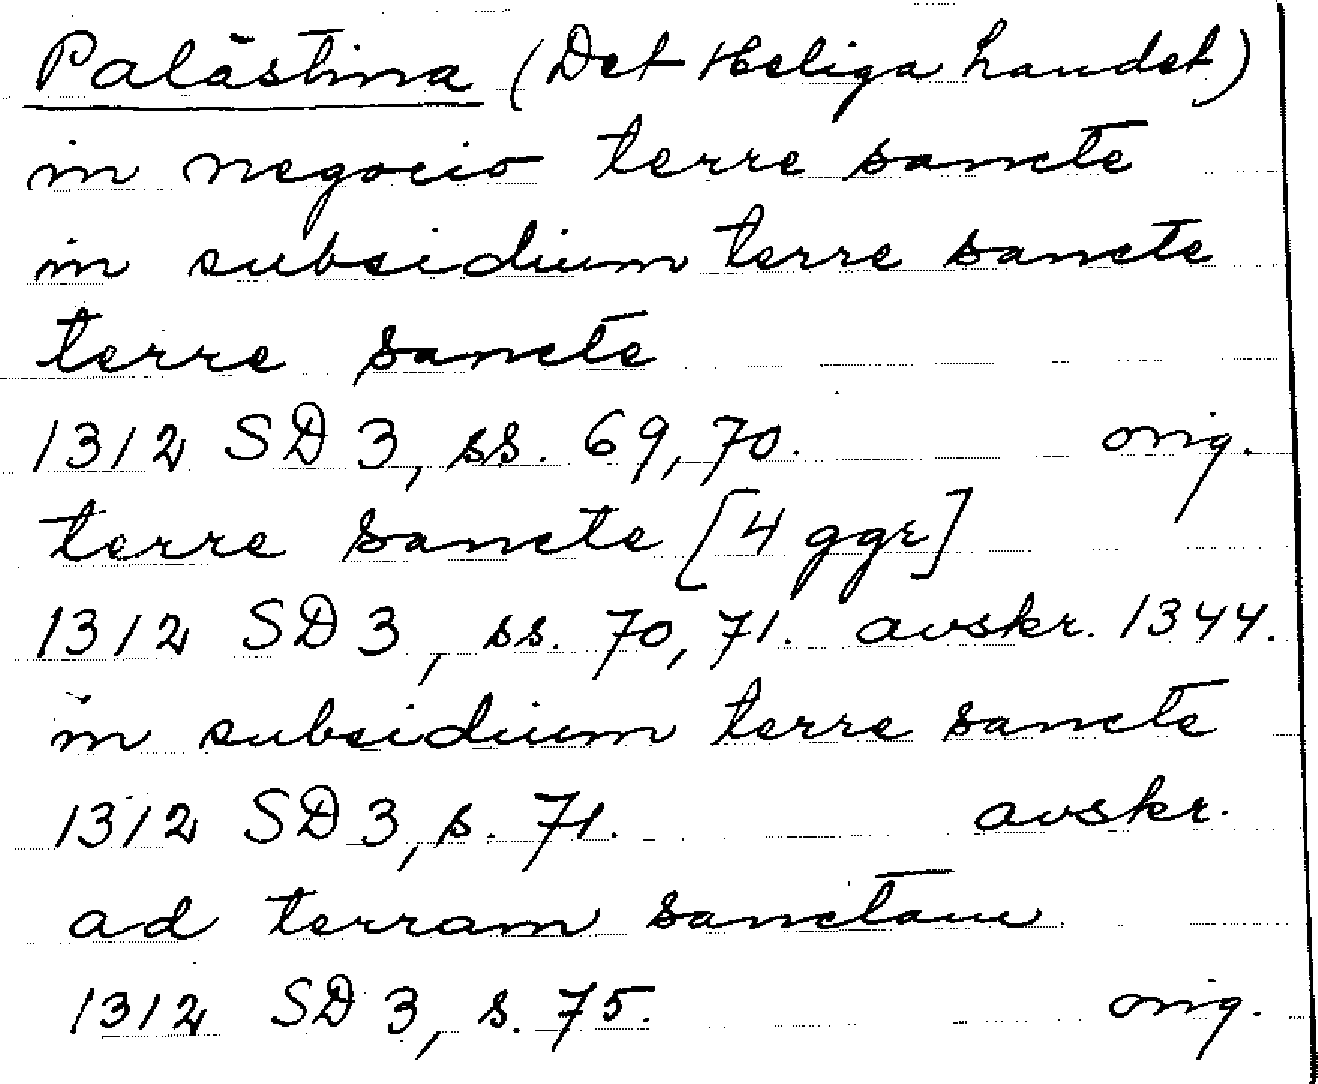 Palästina (Det Heliga Landet)
in negocio terre sancte
in subsidium terre sancte
terre sancte
1312 SD 3, ss. 69, 70. orig.
terre sancte [4 ggr]
1312 SD 3, ss. 70, 71. avskr. 1344.
in subsidium terre sancte
1312 SD 3, s. 71. avskr.
ad terram sanctam
1312 SD 3, s. 75. orig.